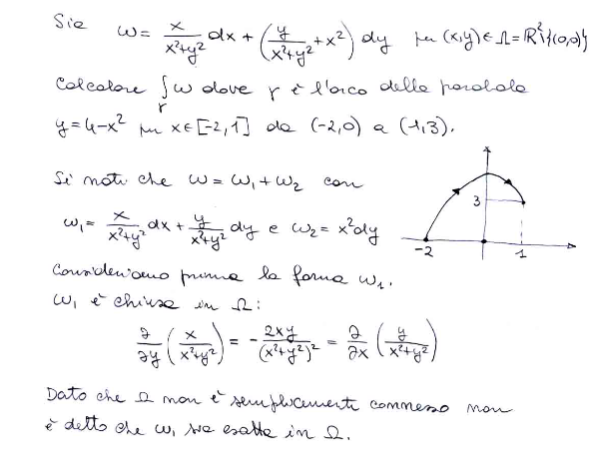 Sia ω = x/(x²+y²) dx + (y/(x²+y²) + x²) dy per (x,y) ∈ Ω = ℝ²\{(0,0)}
Calcolare ∫_γ ω dove γ è l'arco della parabola
y = 4-x² per x ∈ [-2,1] da (-2,0) a (1,3).
Si noti che ω = ω₁ + ω₂ con
ω₁ = x/(x²+y²) dx + y/(x²+y²) dy e ω₂ = x² dy
3
-2
1
Consideriamo prima la forma ω₁.
ω₁ è chiusa in Ω:
∂/∂y (x/(x²+y²)) = - 2xy/(x²+y²)² = ∂/∂x (y/(x²+y²))
Dato che Ω non è semplicemente connesso non
è detto che ω₁ sia esatta in Ω.